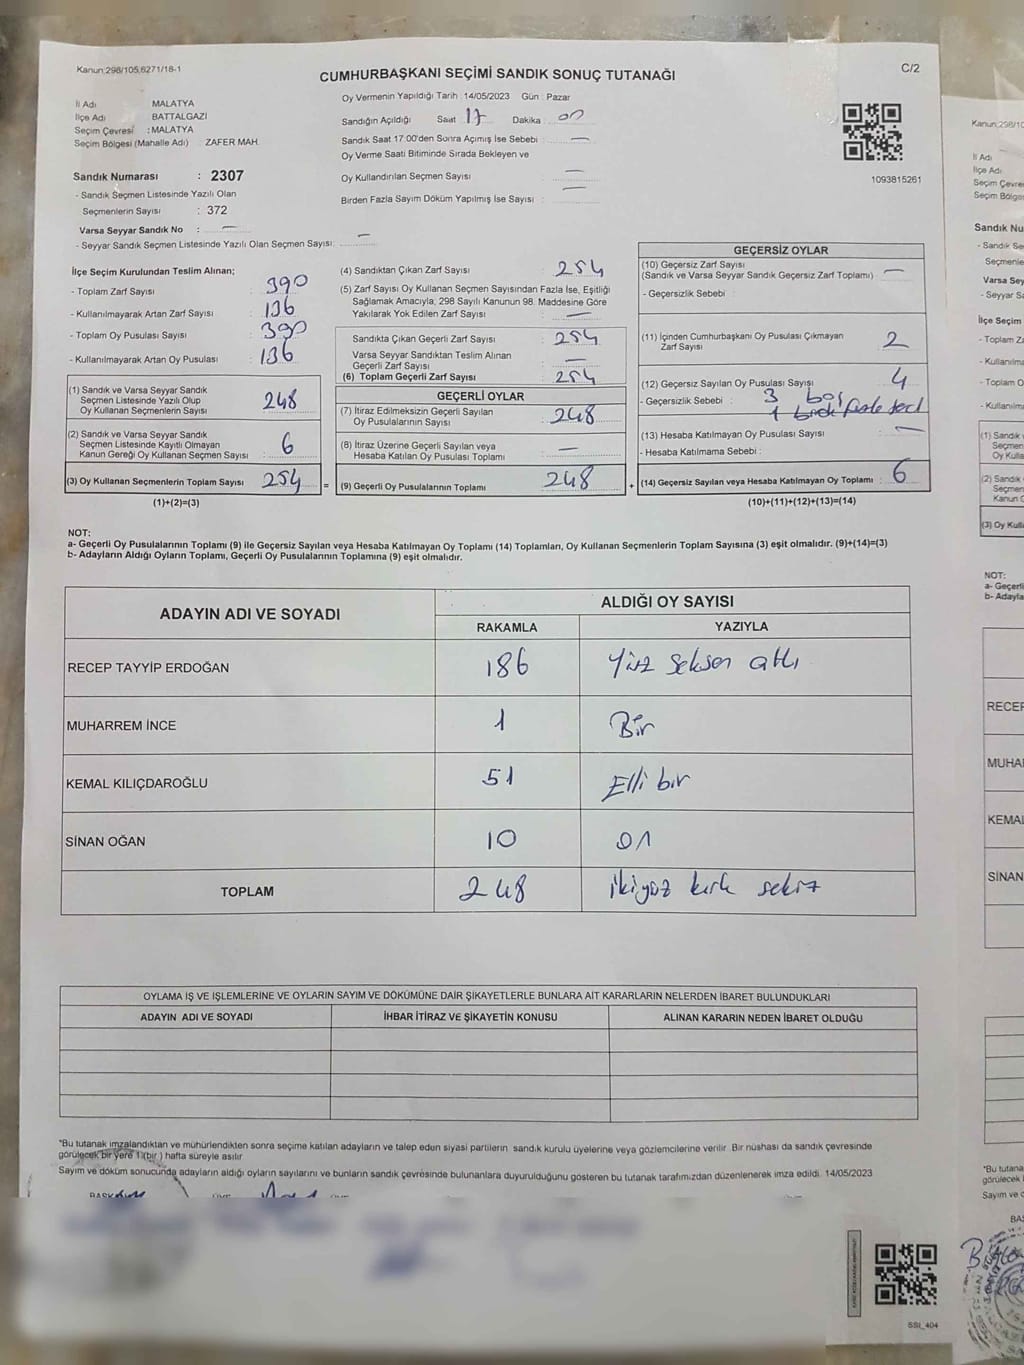 Kanun:298/105,6271/18-1
C/2
CUMHURBAŞKANI SEÇİMİ SANDIK SONUÇ TUTANAĞI
İl Adı MALATYA
İlçe Adı BATTALGAZİ
Seçim Çevresi : MALATYA
Seçim Bölgesi (Mahalle Adı) : ZAFER MAH.
Oy Vermenin Yapıldığı Tarih : 14/05/2023 Gün : Pazar
Sandığın Açıldığı Saat 17 Dakika : 00
Sandık Saat 17.00'den Sonra Açımış İse Sebebi : —
Oy Verme Saati Bitiminde Sırada Bekleyen ve
Oy Kullandırılan Seçmen Sayısı —
Birden Fazla Sayım Döküm Yapılmış İse Sayısı : —
1093815261
Sandık Numarası : 2307
- Sandık Seçmen Listesinde Yazılı Olan
Seçmenlerin Sayısı : 372
Varsa Seyyar Sandık No : —
- Seyyar Sandık Seçmen Listesinde Yazılı Olan Seçmen Sayısı: —
İlçe Seçim Kurulundan Teslim Alınan;
- Toplam Zarf Sayısı : 390
- Kullanılmayarak Artan Zarf Sayısı : 136
- Toplam Oy Pusulası Sayısı : 390
- Kullanılmayarak Artan Oy Pusulası : 136
(1) Sandık ve Varsa Seyyar Sandık
Seçmen Listesinde Yazılı Olup
Oy Kullanan Seçmenlerin Sayısı 248
(2) Sandık ve Varsa Seyyar Sandık
Seçmen Listesinde Kayıtlı Olmayan
Kanun Gereği Oy Kullanan Seçmen Sayısı : 6
(3) Oy Kullanan Seçmenlerin Toplam Sayısı : 254
(1)+(2)=(3)
(4) Sandıktan Çıkan Zarf Sayısı : 254
(5) Zarf Sayısı Oy Kullanan Seçmen Sayısından Fazla İse, Eşitliği
Sağlamak Amacıyla, 298 Sayılı Kanunun 98. Maddesine Göre
Yakılarak Yok Edilen Zarf Sayısı : —
Sandıkta Çıkan Geçerli Zarf Sayısı : 254
Varsa Seyyar Sandıktan Teslim Alınan
Geçerli Zarf Sayısı : —
(6) Toplam Geçerli Zarf Sayısı : 254
GEÇERLİ OYLAR
(7) İtiraz Edilmeksizin Geçerli Sayılan
Oy Pusulalarının Sayısı : 248
(8) İtiraz Üzerine Geçerli Sayılan veya
Hesaba Katılan Oy Pusulası Toplamı : —
= (9) Geçerli Oy Pusulalarının Toplamı : 248
GEÇERSİZ OYLAR
(10) Geçersiz Zarf Sayısı
(Sandık ve Varsa Seyyar Sandık Geçersiz Zarf Toplamı) : —
- Geçersizlik Sebebi :
(11) İçinden Cumhurbaşkanı Oy Pusulası Çıkmayan
Zarf Sayısı : 2
(12) Geçersiz Sayılan Oy Pusulası Sayısı : 4
- Geçersizlik Sebebi : 3 boş
1 birden fazla
(13) Hesaba Katılmayan Oy Pusulası Sayısı : —
- Hesaba Katılmama Sebebi :
+ (14) Geçersiz Sayılan veya Hesaba Katılmayan Oy Toplamı : 6
(10)+(11)+(12)+(13)=(14)
NOT:
a- Geçerli Oy Pusulalarının Toplamı (9) ile Geçersiz Sayılan veya Hesaba Katılmayan Oy Toplamı (14) Toplamları, Oy Kullanan Seçmenlerin Toplam Sayısına (3) eşit olmalıdır. (9)+(14)=(3)
b- Adayların Aldığı Oyların Toplamı, Geçerli Oy Pusulalarının Toplamına (9) eşit olmalıdır.
ADAYIN ADI VE SOYADI ALDIĞI OY SAYISI
RAKAMLA YAZIYLA
RECEP TAYYİP ERDOĞAN 186 Yüz seksen altı
MUHARREM İNCE 1 Bir
KEMAL KILIÇDAROĞLU 51 Elli bir
SİNAN OĞAN 10 On
TOPLAM 248 ikiyüz kırk sekiz
OYLAMA İŞ VE İŞLEMLERİNE VE OYLARIN SAYIM VE DÖKÜMÜNE DAİR ŞİKAYETLERLE BUNLARA AİT KARARLARIN NELERDEN İBARET BULUNDUKLARI
ADAYIN ADI VE SOYADI İHBAR İTİRAZ VE ŞİKAYETİN KONUSU ALINAN KARARIN NEDEN İBARET OLDUĞU
*Bu tutanak imzalandıktan ve mühürlendikten sonra seçime katılan adayların ve talep eden siyasi partilerin sandık kurulu üyelerine veya gözlemcilerine verilir. Bir nüshası da sandık çevresinde
görülecek bir yere 1 (bir) hafta süreyle asılır
Sayım ve döküm sonucunda adayların aldığı oyların sayılarını ve bunların sandık çevresinde bulunanlara duyurulduğunu gösteren bu tutanak tarafımızdan düzenlenerek imza edildi. 14/05/2023
BAŞKAN ÜYE ÜYE
SSI_404
Kanun:298/10
İl Adı
İlçe Adı
Seçim Çevre
Seçim Bölges
Sandık Nu
- Sandık Se
Seçmenle
Varsa Sey
- Seyyar S
İlçe Seçim
- Toplam Za
- Kullanılma
- Toplam O
- Kullanılma
(1) Sandık
Seçmen
Oy Kulla
(2) Sandık
Seçmen
Kanun G
(3) Oy Kull
NOT:
a- Geçerli
b- Adayla
RECEP
MUHA
KEMAL
SİNAN
*Bu tutana
görülecek
Sayım ve
BAŞ